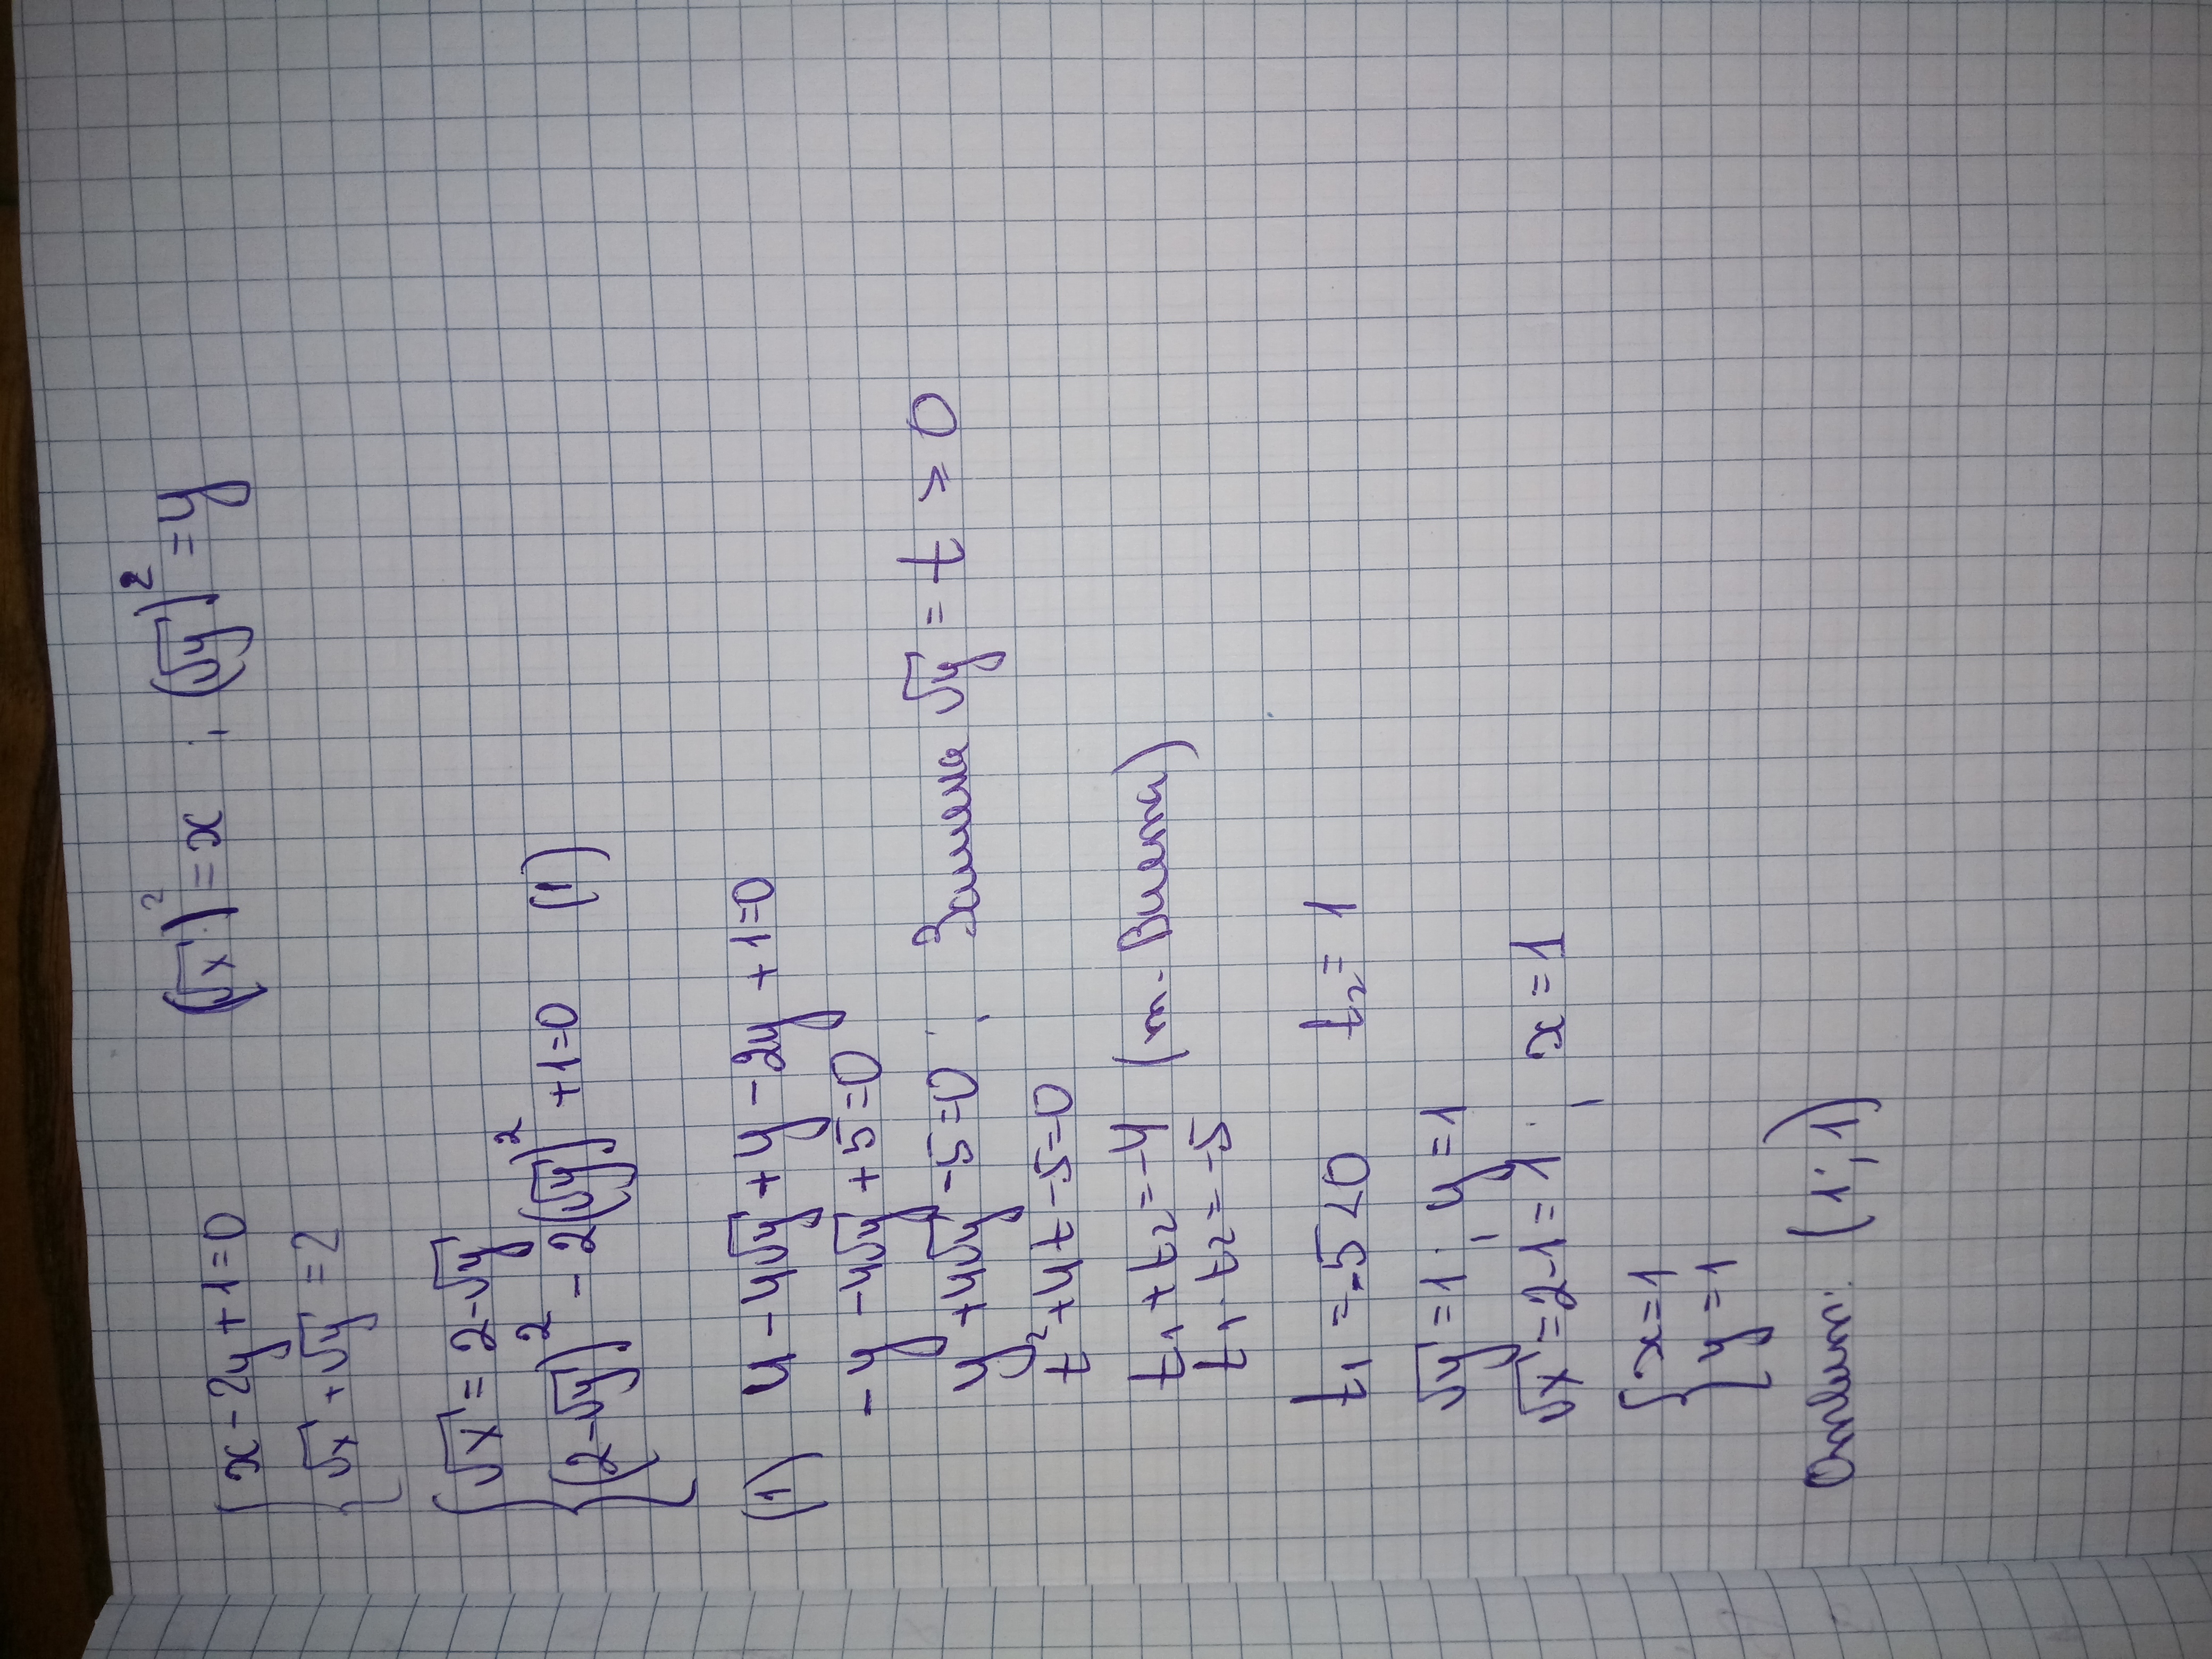 { x - 2y + 1 = 0 (√x)² = x ; (√y)² = y
√x + √y = 2
{ √x = 2 - √y
(2 - √y)² - 2(√y)² + 1 = 0 (1)
(1) 4 - 4√y + y - 2y + 1 = 0
-y - 4√y + 5 = 0
y + 4√y - 5 = 0 ; Замена √y = t > 0
t² + 4t - 5 = 0
t₁ + t₂ = -4 (т. Виета)
t₁ · t₂ = -5
t₁ = -5 < 0 t₂ = 1
√y = 1 ; y = 1
√x = 2 - 1 = 1 ; x = 1
{ x = 1
y = 1
Ответ: (1; 1)